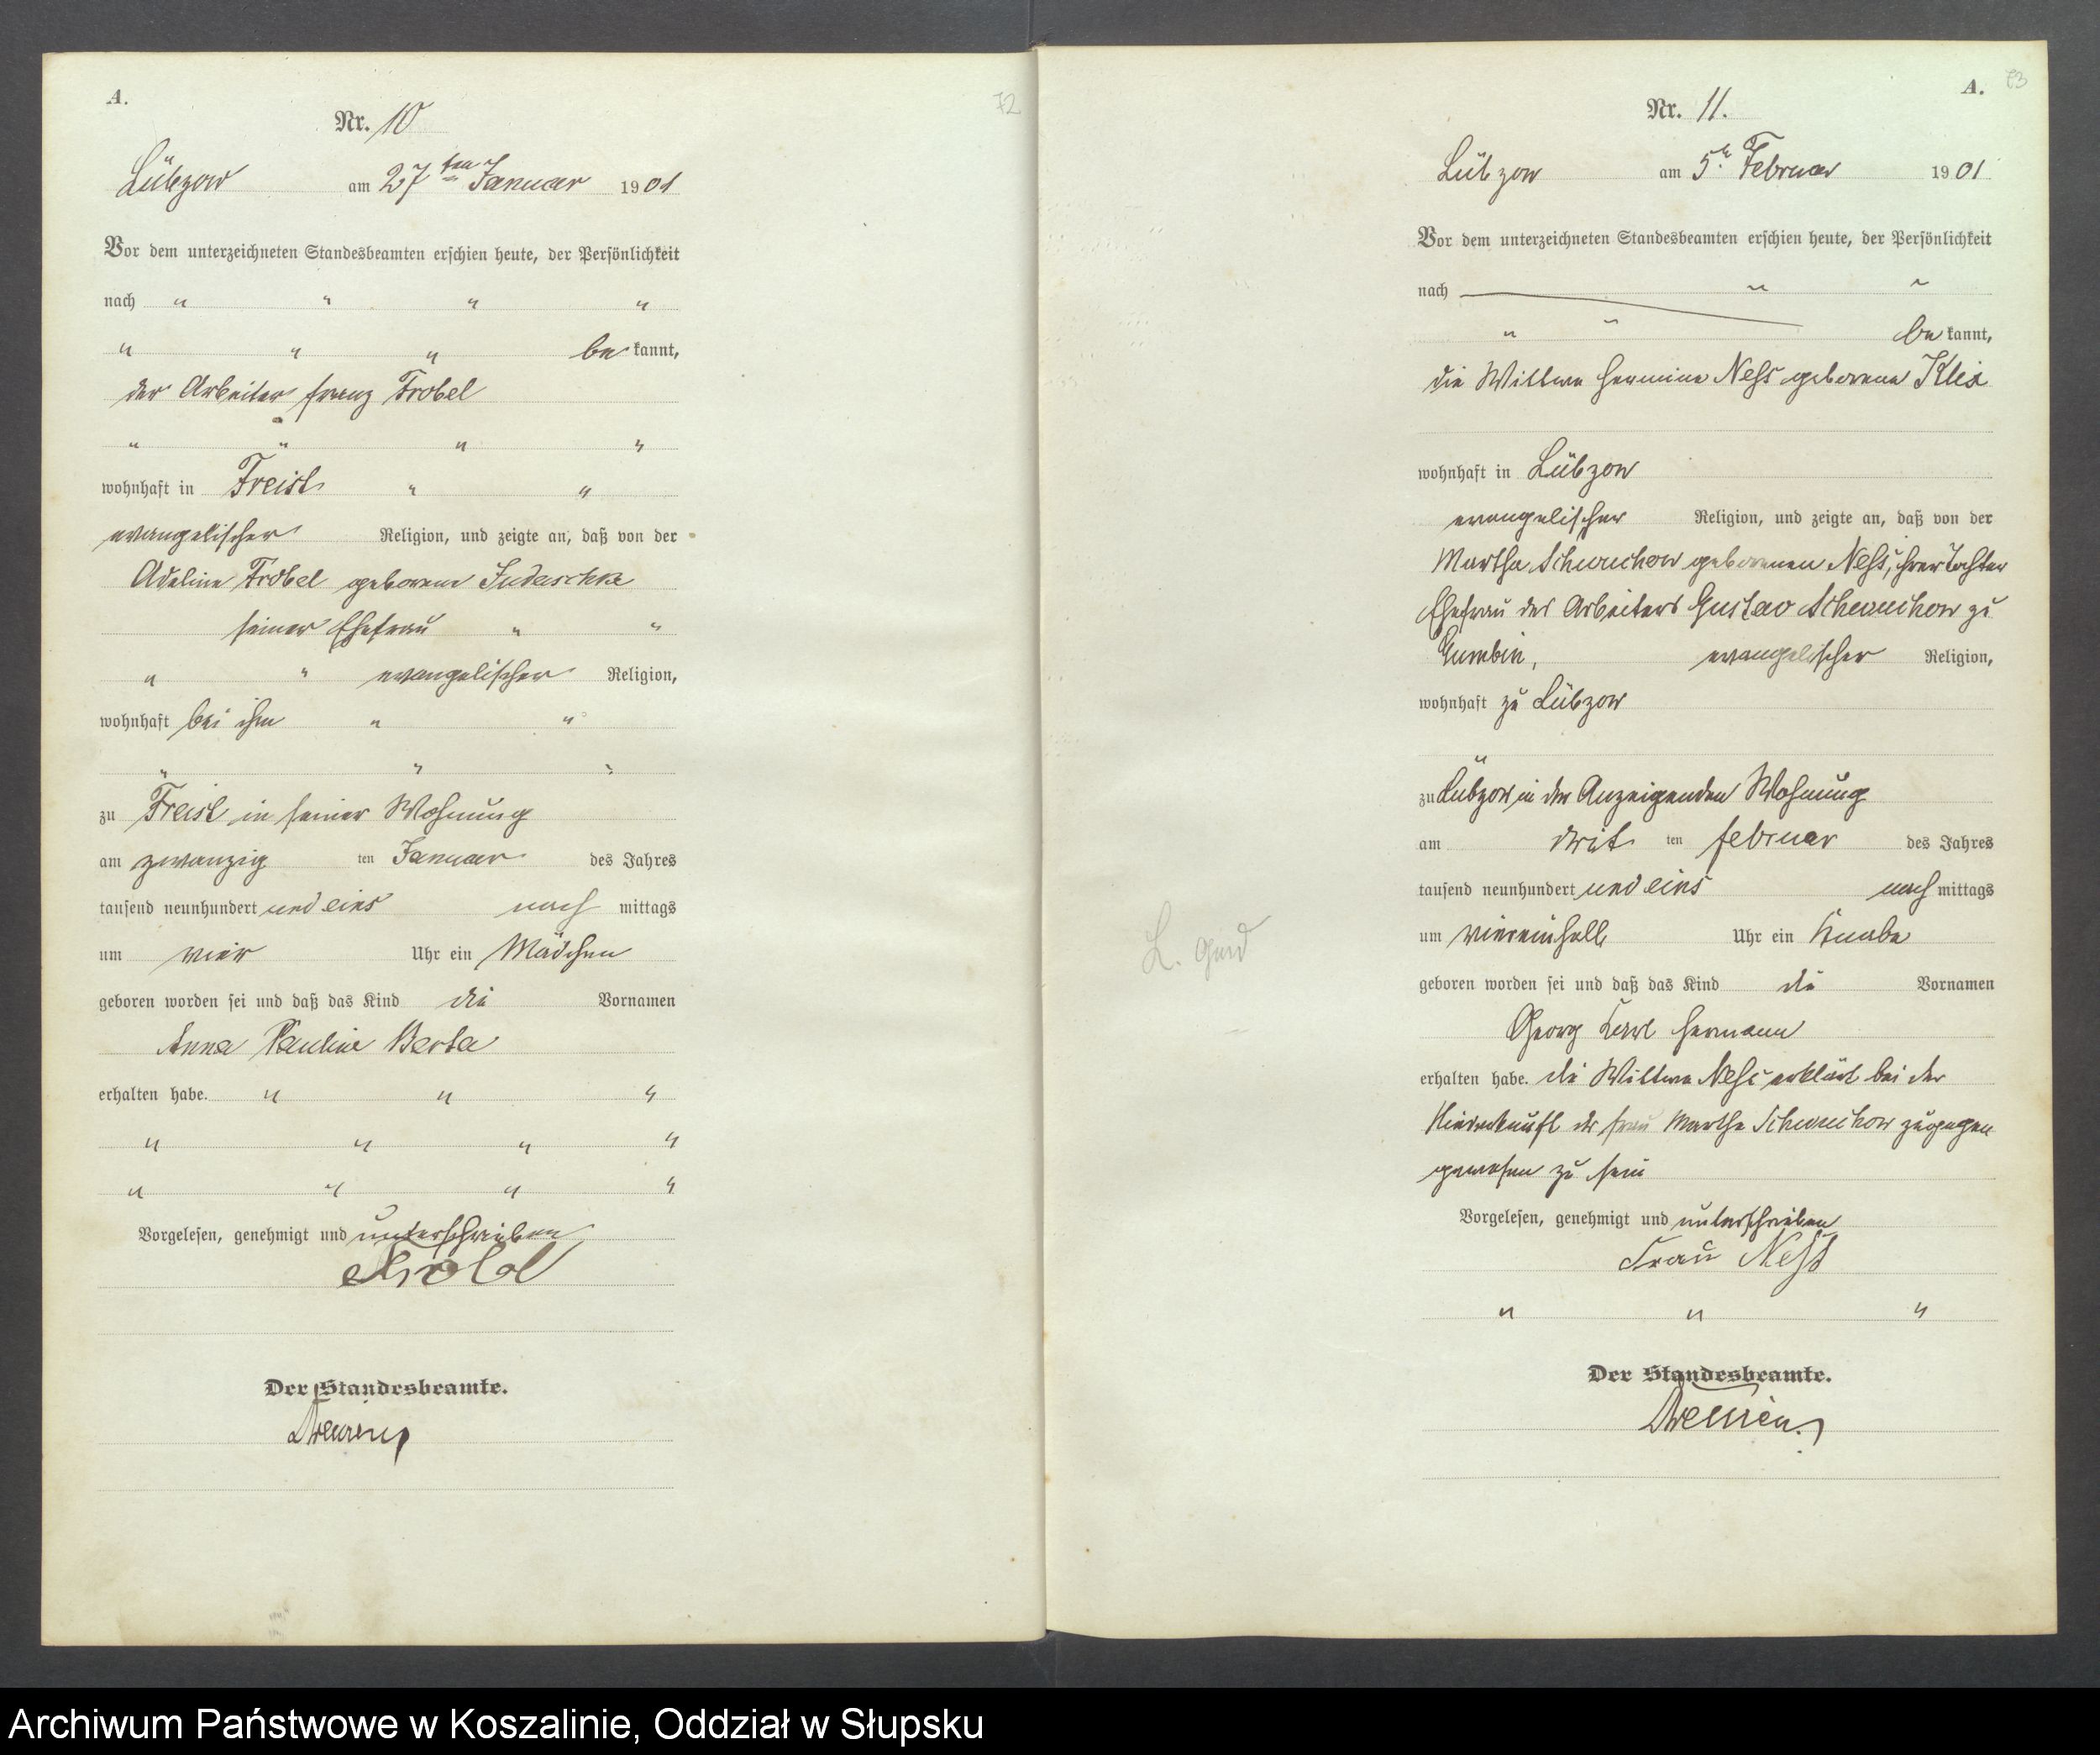 A.
72
Nr. 10
Lübzow am 27ten Januar 1901
Vor dem unterzeichneten Standesbeamten erschien heute, der Persönlichkeit
nach " " " "
" " " be kannt,
der Arbeiter Franz Trobel
" " " "
wohnhaft in Freist " "
evangelischer Religion, und zeigte an, daß von der
Adeline Trobel geborene Judaschke
seiner Ehefrau " "
" " evangelischer Religion,
wohnhaft bei ihm " "
" " "
zu Freist in seiner Wohnung
am zwanzig ten Januar des Jahres
tausend neunhundert und eins nach mittags
um vier Uhr ein Mädchen
geboren worden sei und daß das Kind die Vornamen
Anna Pauline Berta
erhalten habe. " " "
" " " "
" " " "
Vorgelesen, genehmigt und unterschrieben
Der Standesbeamte.
A. 73
Nr. 11.
Lübzow am 5t. Februar 1901
Vor dem unterzeichneten Standesbeamten erschien heute, der Persönlichkeit
nach " "
" " be kannt,
die Wittwe Hermine Neß geborene Klix
wohnhaft in Lübzow
evangelischer Religion, und zeigte an, daß von der
Martha Schwuchow geborenen Neß, ihrer Tochter
Ehefrau des Arbeiters Gustav Schwuchow zu
Gumbin, evangelischer Religion,
wohnhaft zu Lübzow
zu Lübzow, in der Anzeigenden Wohnung
am drit ten Februar des Jahres
tausend neunhundert und eins nach mittags
um viereinhalb Uhr ein Knabe
geboren worden sei und daß das Kind die Vornamen
Georg Karl Hermann
erhalten habe. die Wittwe Neß erklärt bei der
Niederkunft der Frau Martha Schwuchow zugegen
gewesen zu sein
Vorgelesen, genehmigt und unterschrieben
Frau Neß
" " "
Der Standesbeamte.
Archiwum Państwowe w Koszalinie, Oddział w Słupsku